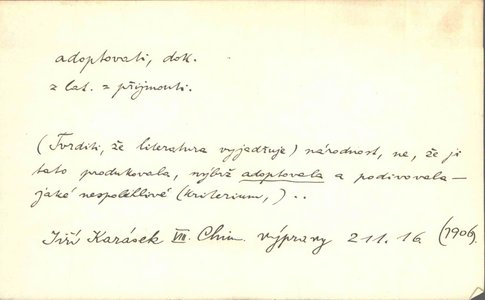 adoptovati, dok.
z lat. = přijmouti.
(Tvrditi, že literatura vyjadřuje) národnost, ne, že ji
tato produkovala, nýbrž adoptovala a podivovala –
jaké nespolehlivé (kriterium,) ..
Jiří Karásek VIII. Chim. výpravy 211.16 (1906).